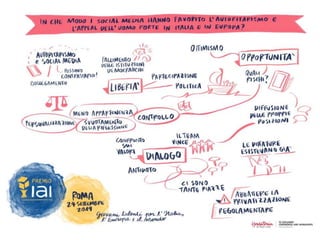 IN CHE MODO I SOCIAL MEDIA HANNO FAVORITO L'AUTORITARISMO E
L'APPEAL DELL'UOMO FORTE IN ITALIA E IN EUROPA?
AUTORITARISMO
E SOCIAL MEDIA
POSSONO
CONTRASTARLO?
COLLEGAMENTO
FALLIMENTO
DELLE ISTITUZIONI
DEMOCRATICHE
LIBERTÀ
PARTECIPAZIONE
POLITICA
OTTIMISMO
OPPORTUNITÀ
QUALI
RISCHI?
PERSONALIZZAZIONE
MENO APPARTENENZA
SVUOTAMENTO
DELLA PARTECIPAZIONE
CONTROLLO
DIFFUSIONE
DELLE PROPRIE
POSIZIONI
CONFRONTO
SUI
VALORI
IL TEAM
VINCE
DIALOGO
LE DITTATURE
ESISTEVANO GIÀ
ANTIDOTO
CI SONO
TANTE PIAZZE
ABBATTERE LA
PRIVATIZZAZIONE
REGOLAMENTARE
PREMIO
iai
ROMA
24 SETTEMBRE
2019
Giovani talenti per l'Italia,
l'Europa e il mondo